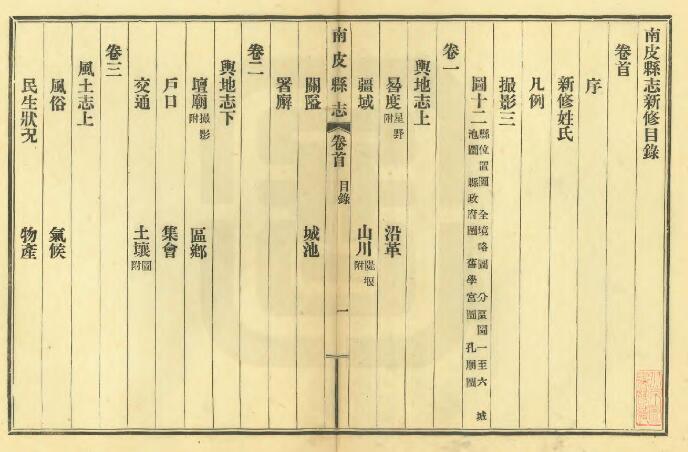 南皮縣志新修目錄
卷首
序
新修姓氏
凡例
撮影三
圖十二 縣位置圖 全境略圖 分區圖一至六 城池圖 縣政府圖 舊學宮圖 孔廟圖
卷一
輿地志上
晷度 星野附 沿革
疆域 山川 隄堰附
南皮縣志 卷首 目錄 一
關隘 城池
署廨
卷二
輿地志下
壇廟 撮影附 區鄉
戶口 集會
交通 土壤 圖附
卷三
風土志上
風俗 氣候
民生狀況 物產